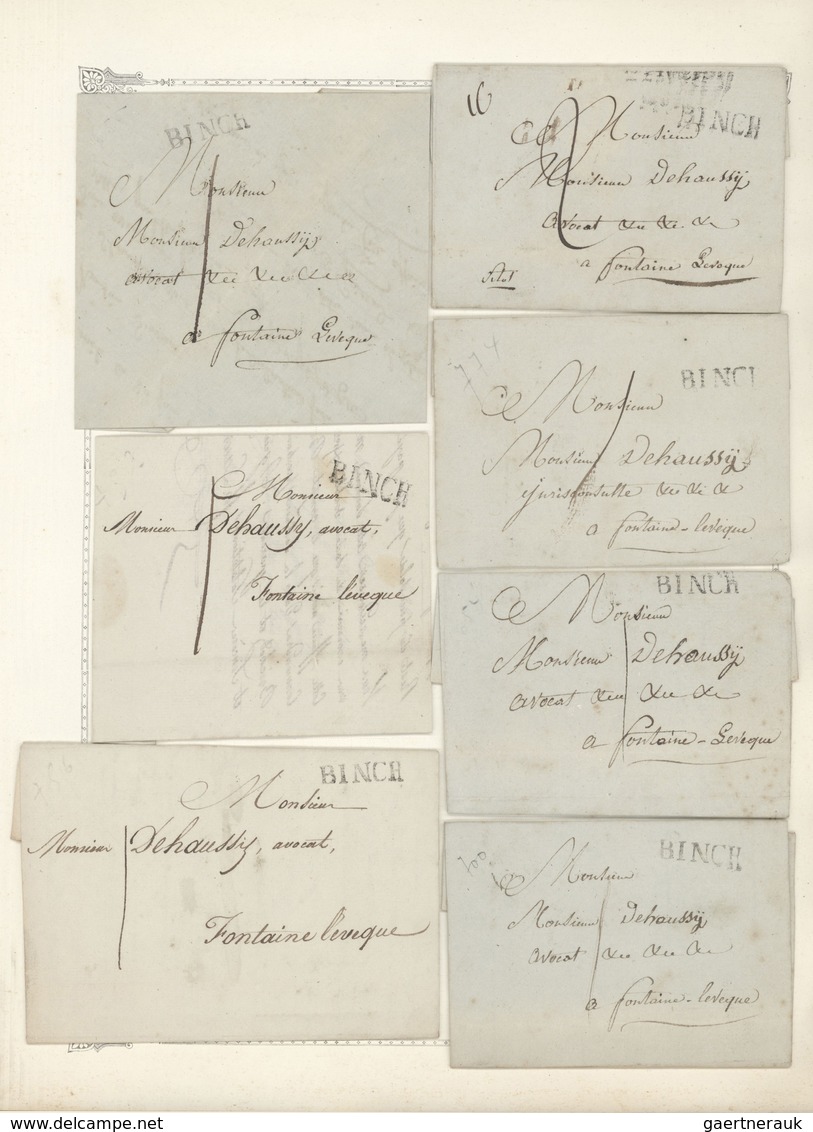 BINCH
Monsieur
Monsieur Dehaussÿ
avocat &c &c &c
a fontaine Leveque
16
BINCH
Monsieur
Monsieur Dehaussÿ
avocat &c &c &c
a fontaine Leveque
BINCH
Monsieur
Monsieur Dehaussy, avocat,
Fontaine l'éveque
774
BINCH
Monsieur
Monsieur Dehaussÿ
jurisconsulte &c &c &
a fontaine-leveque
BINCH
Monsieur
Monsieur Dehaussÿ
avocat &c &c &c
a fontaine-Leveque
BINCH
Monsieur
Monsieur Dehaussÿ, avocat,
Fontaine l'éveque
700
BINCH
Monsieur
Monsieur Dehaussÿ
avocat &c &c &c
a fontaine-leveque
delcampe.net
gaertnerauk